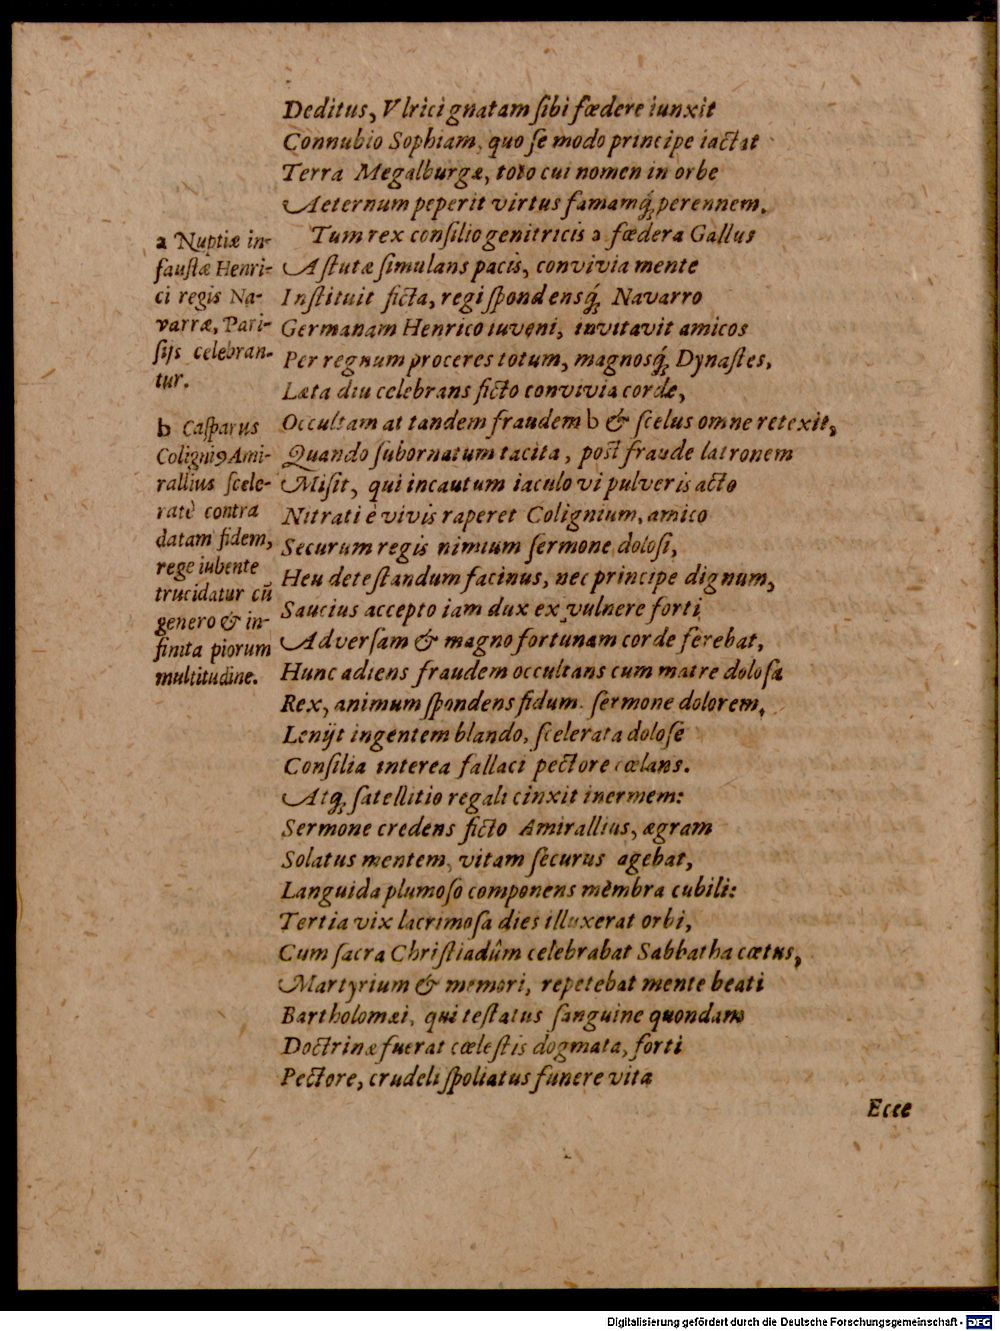 Deditus, Vlrici gnatam ſibi fœdere iunxit
Connubio Sophiam, quo ſe modo principe iactat
Terra Megalburgæ, toto cui nomen in orbe
Aeternum peperit virtus famamq́; perennem.
Tum rex conſilio genitricis a fœdera Gallus
Aſtutæ ſimulans pacis, convivia mente
Inſtituit ficta, regi ſpondensq́; Navarro
Germanam Henrico iuveni, invitavit amicos
Per regnum proceres totum, magnosq́; Dynaſtes,
Læta diu celebrans ficto convivia corde,
Occultam at tandem fraudem b & ſcelus omne retexit,
Quando ſubornatum tacita, poſt fraude latronem
Miſit, qui incautum iaculo vi pulveris acto
Nitrati è vivis raperet Colignium, amico
Securum regis nimium ſermone doloſi,
Heu deteſtandum facinus, nec principe dignum,
Saucius accepto iam dux ex vulnere forti
Adverſam & magno fortunam corde ferebat,
Hunc adiens fraudem occultans cum matre doloſa
Rex, animum ſpondens fidum. ſermone dolorem,
Lenijt ingentem blando, ſcelerata doloſè
Conſilia interea fallaci pectore cœlans.
Atq; ſatellitio regali cinxit inermem:
Sermone credens ficto Amirallius, ægram
Solatus mentem, vitam ſecurus agebat,
Languida plumoſo componens mèmbra cubili:
Tertia vix lacrimoſa dies illuxerat orbi,
Cum ſacra Chriſtiadûm celebrabat Sabbatha cœtus,
Martyrium & memori, repetebat mente beati
Bartholomæi, qui teſtatus ſanguine quondam
Doctrinæ fuerat cœleſtis dogmata, forti
Pectore, crudeli ſpoliatus funere vita
Ecce
a Nuptiæ in-
fauſtæ Henri-
ci regis Na-
varræ, Pari-
ſijs celebran-
tur.
b Caſparus
Coligniꝰ Ami-
rallius ſcele-
ratè contra
datam fidem,
rege iubente
trucidatur cũ
genero & in-
finita piorum
multitudine.
Digitalisierung gefördert durch die Deutsche Forschungsgemeinschaft -
DFG